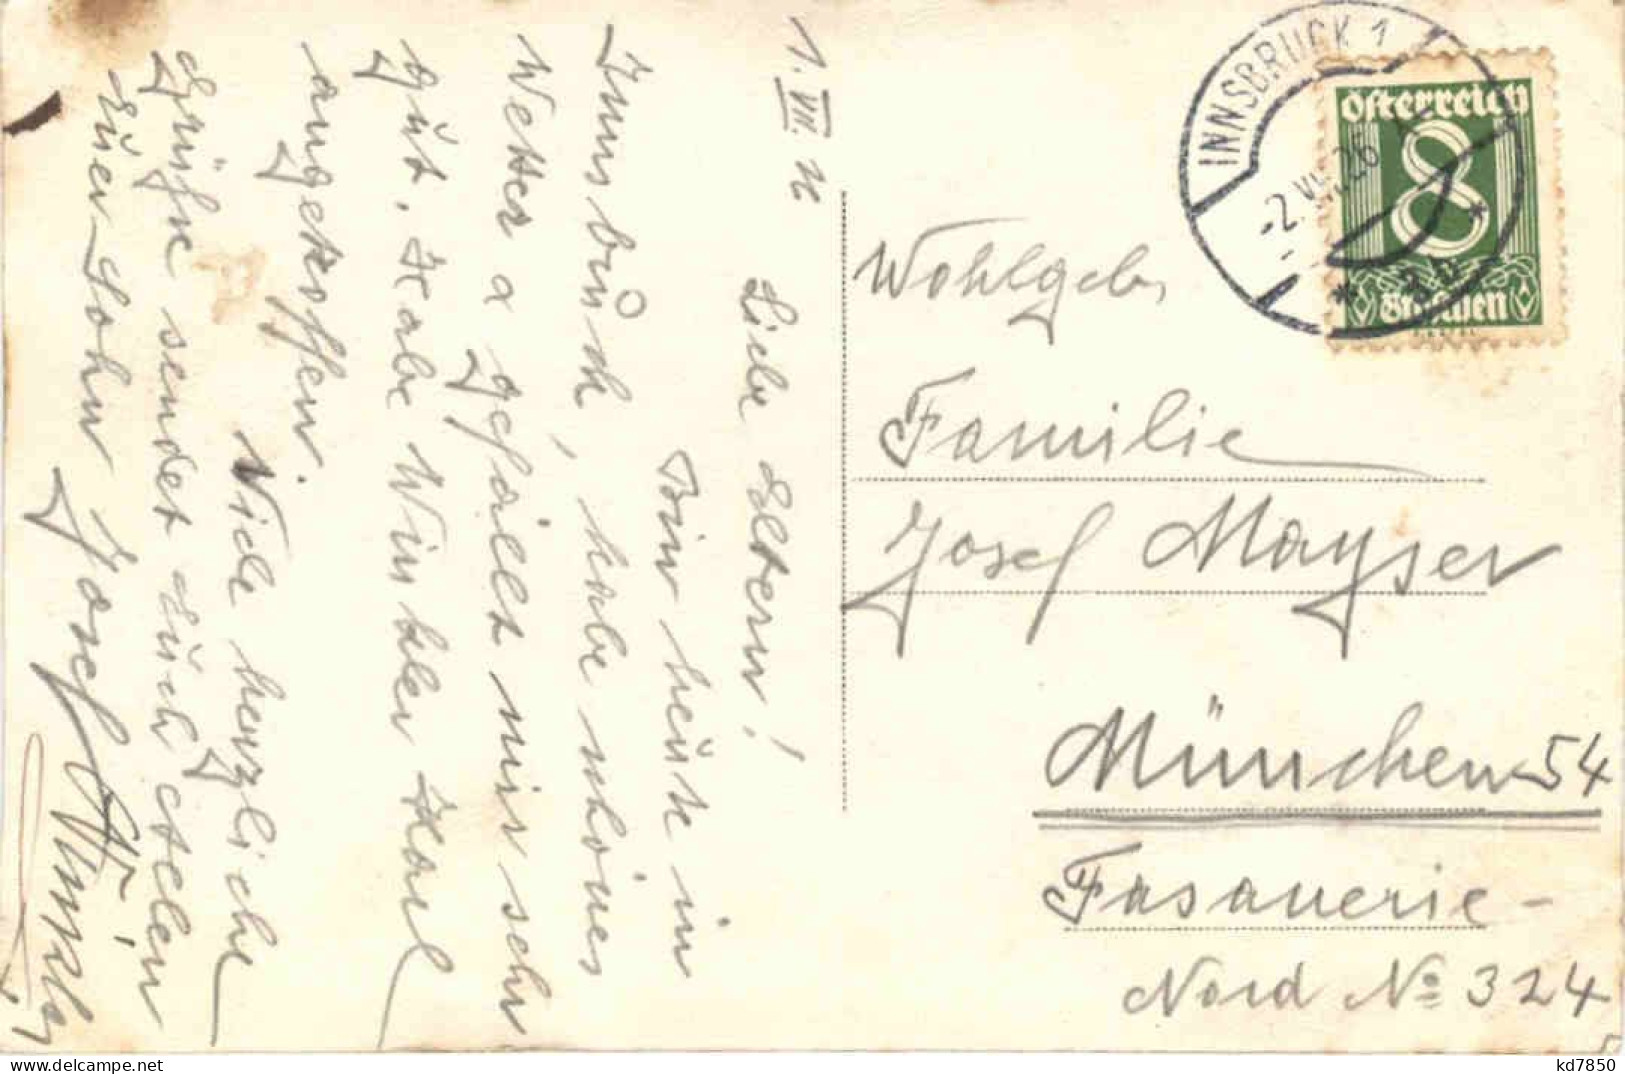 1. VII. 26
Liebe Eltern!
Bin heute in
Innsbruck, habe schönes
Wetter & gefällt mir sehr
gut. Habe Winkler Karl
angetroffen.
Viele herzliche
Grüße sendet Euch stelen
Euer Sohn Josef
Wohlgeb.
Familie
Josef Mayser
München 54
Fasanerie-
Nord No 324
INNSBRUCK 1
-2.VII.26
Österreich
8
Groschen
kd7850